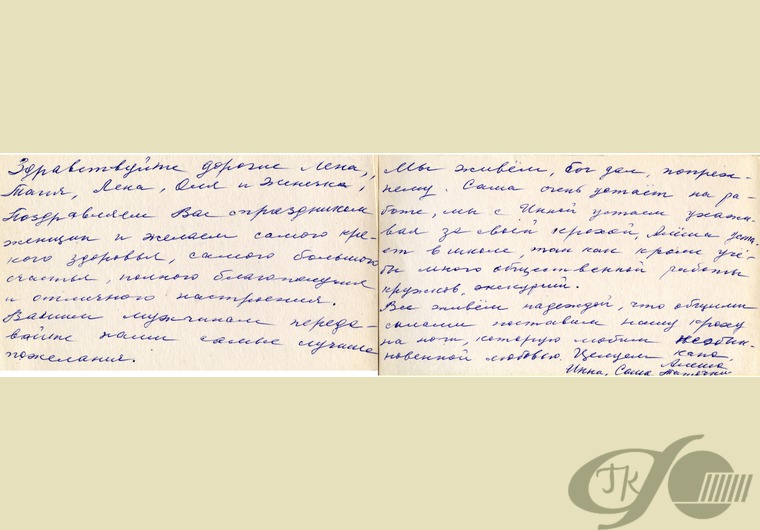 Здравствуйте дорогие Лена,
Таня, Лена, Оля и Женечка,
Поздравляем Вас с праздником
женщин и желаем самого кре-
кого здоровья, самого большого
счастья, полного благополучия
и отличного настроения.
Вашим мужчинам переда-
вайте наши самые лучшие
пожелания.
Мы живём, бог дал, попреж-
нему. Саша очень устаёт на ра-
боте, мы с Инной устаем ухажи-
вая за своей крохой, Алёша уста-
ет в школе, так как кроме учё-
бы много общественной работы
кружков, экскурсий.
Все живём надеждой, что общими
силами поставим нашу кроху
на ноги, которую любим необык-
новенной любовью. Целуем
Алёша
Инна, Саша
ГК